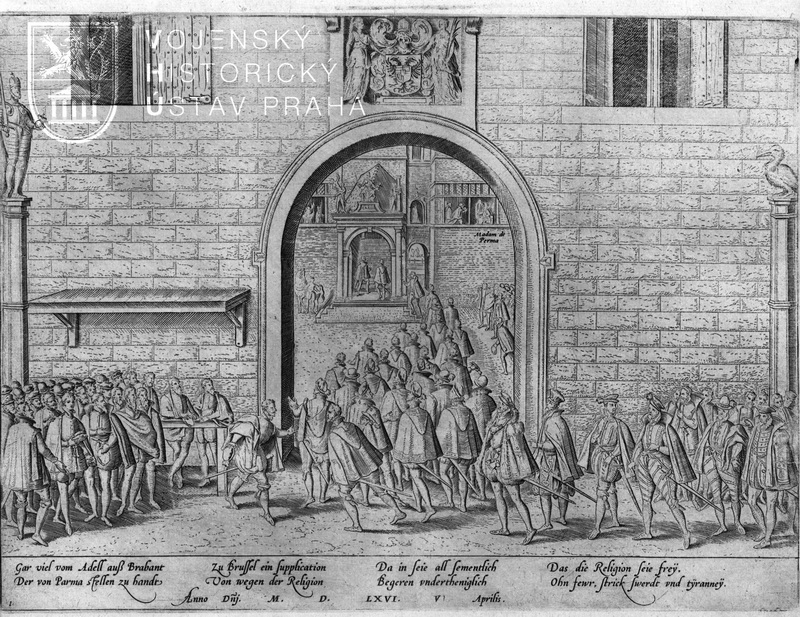 VOJENSKÝ
HISTORICKÝ
ÚSTAV PRAHA
Madam di
Perma
Gar viel vom Adell auß Brabant
Der von Parma stellen zu handt
Zu Brussel ein supplication
Von wegen der Religion
Da in seie all sementlich
Begeren vndertheniglich
Das die Religion seie freÿ.
Ohn fewr, strick swerdt vnd tÿranneÿ.
Anno Dnj. M. D. LXVI. V Aprilis.
1.